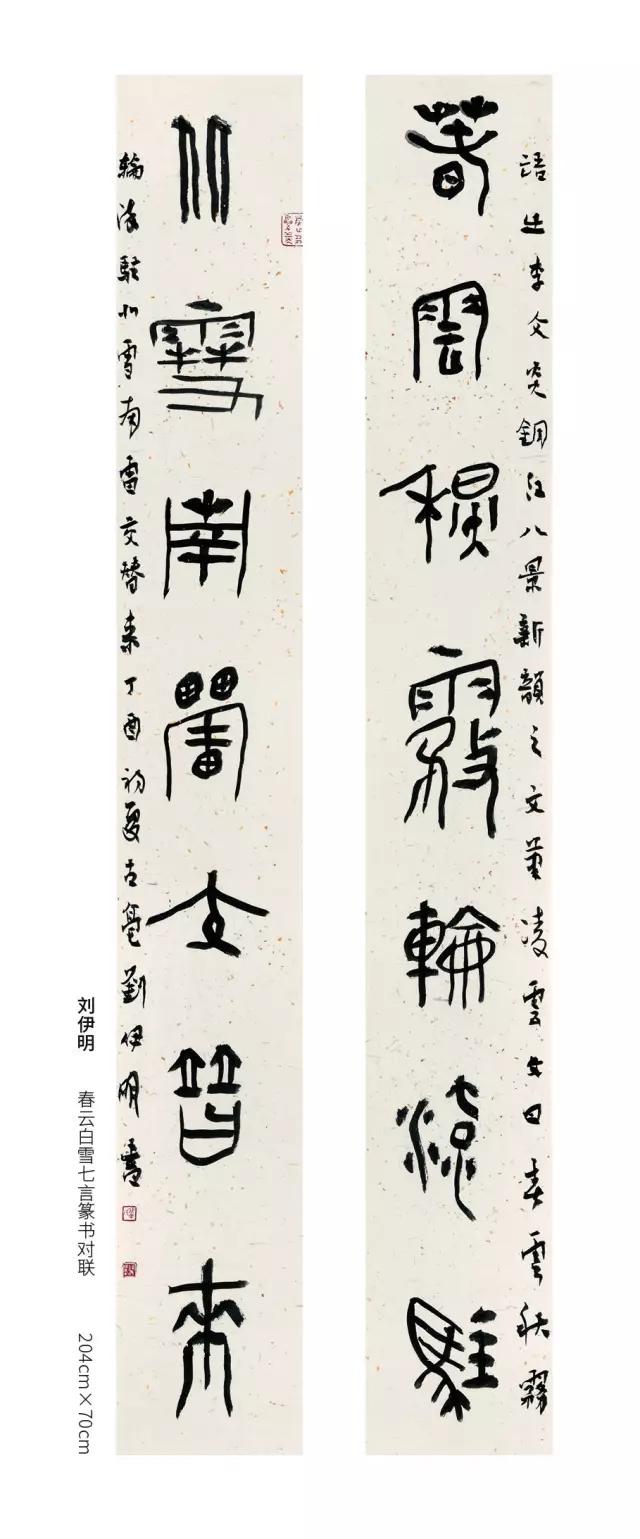 語出李文銅江八景新韻之文筆凌雲文曰春雲秋霧
春雲秋霧輪流駐
北雪南雷交替來
輪流駐北雪南雷交替来丁酉初夏古亳劉伊明書
刘伊明 春云白雪七言篆书对联 204cm×70cm